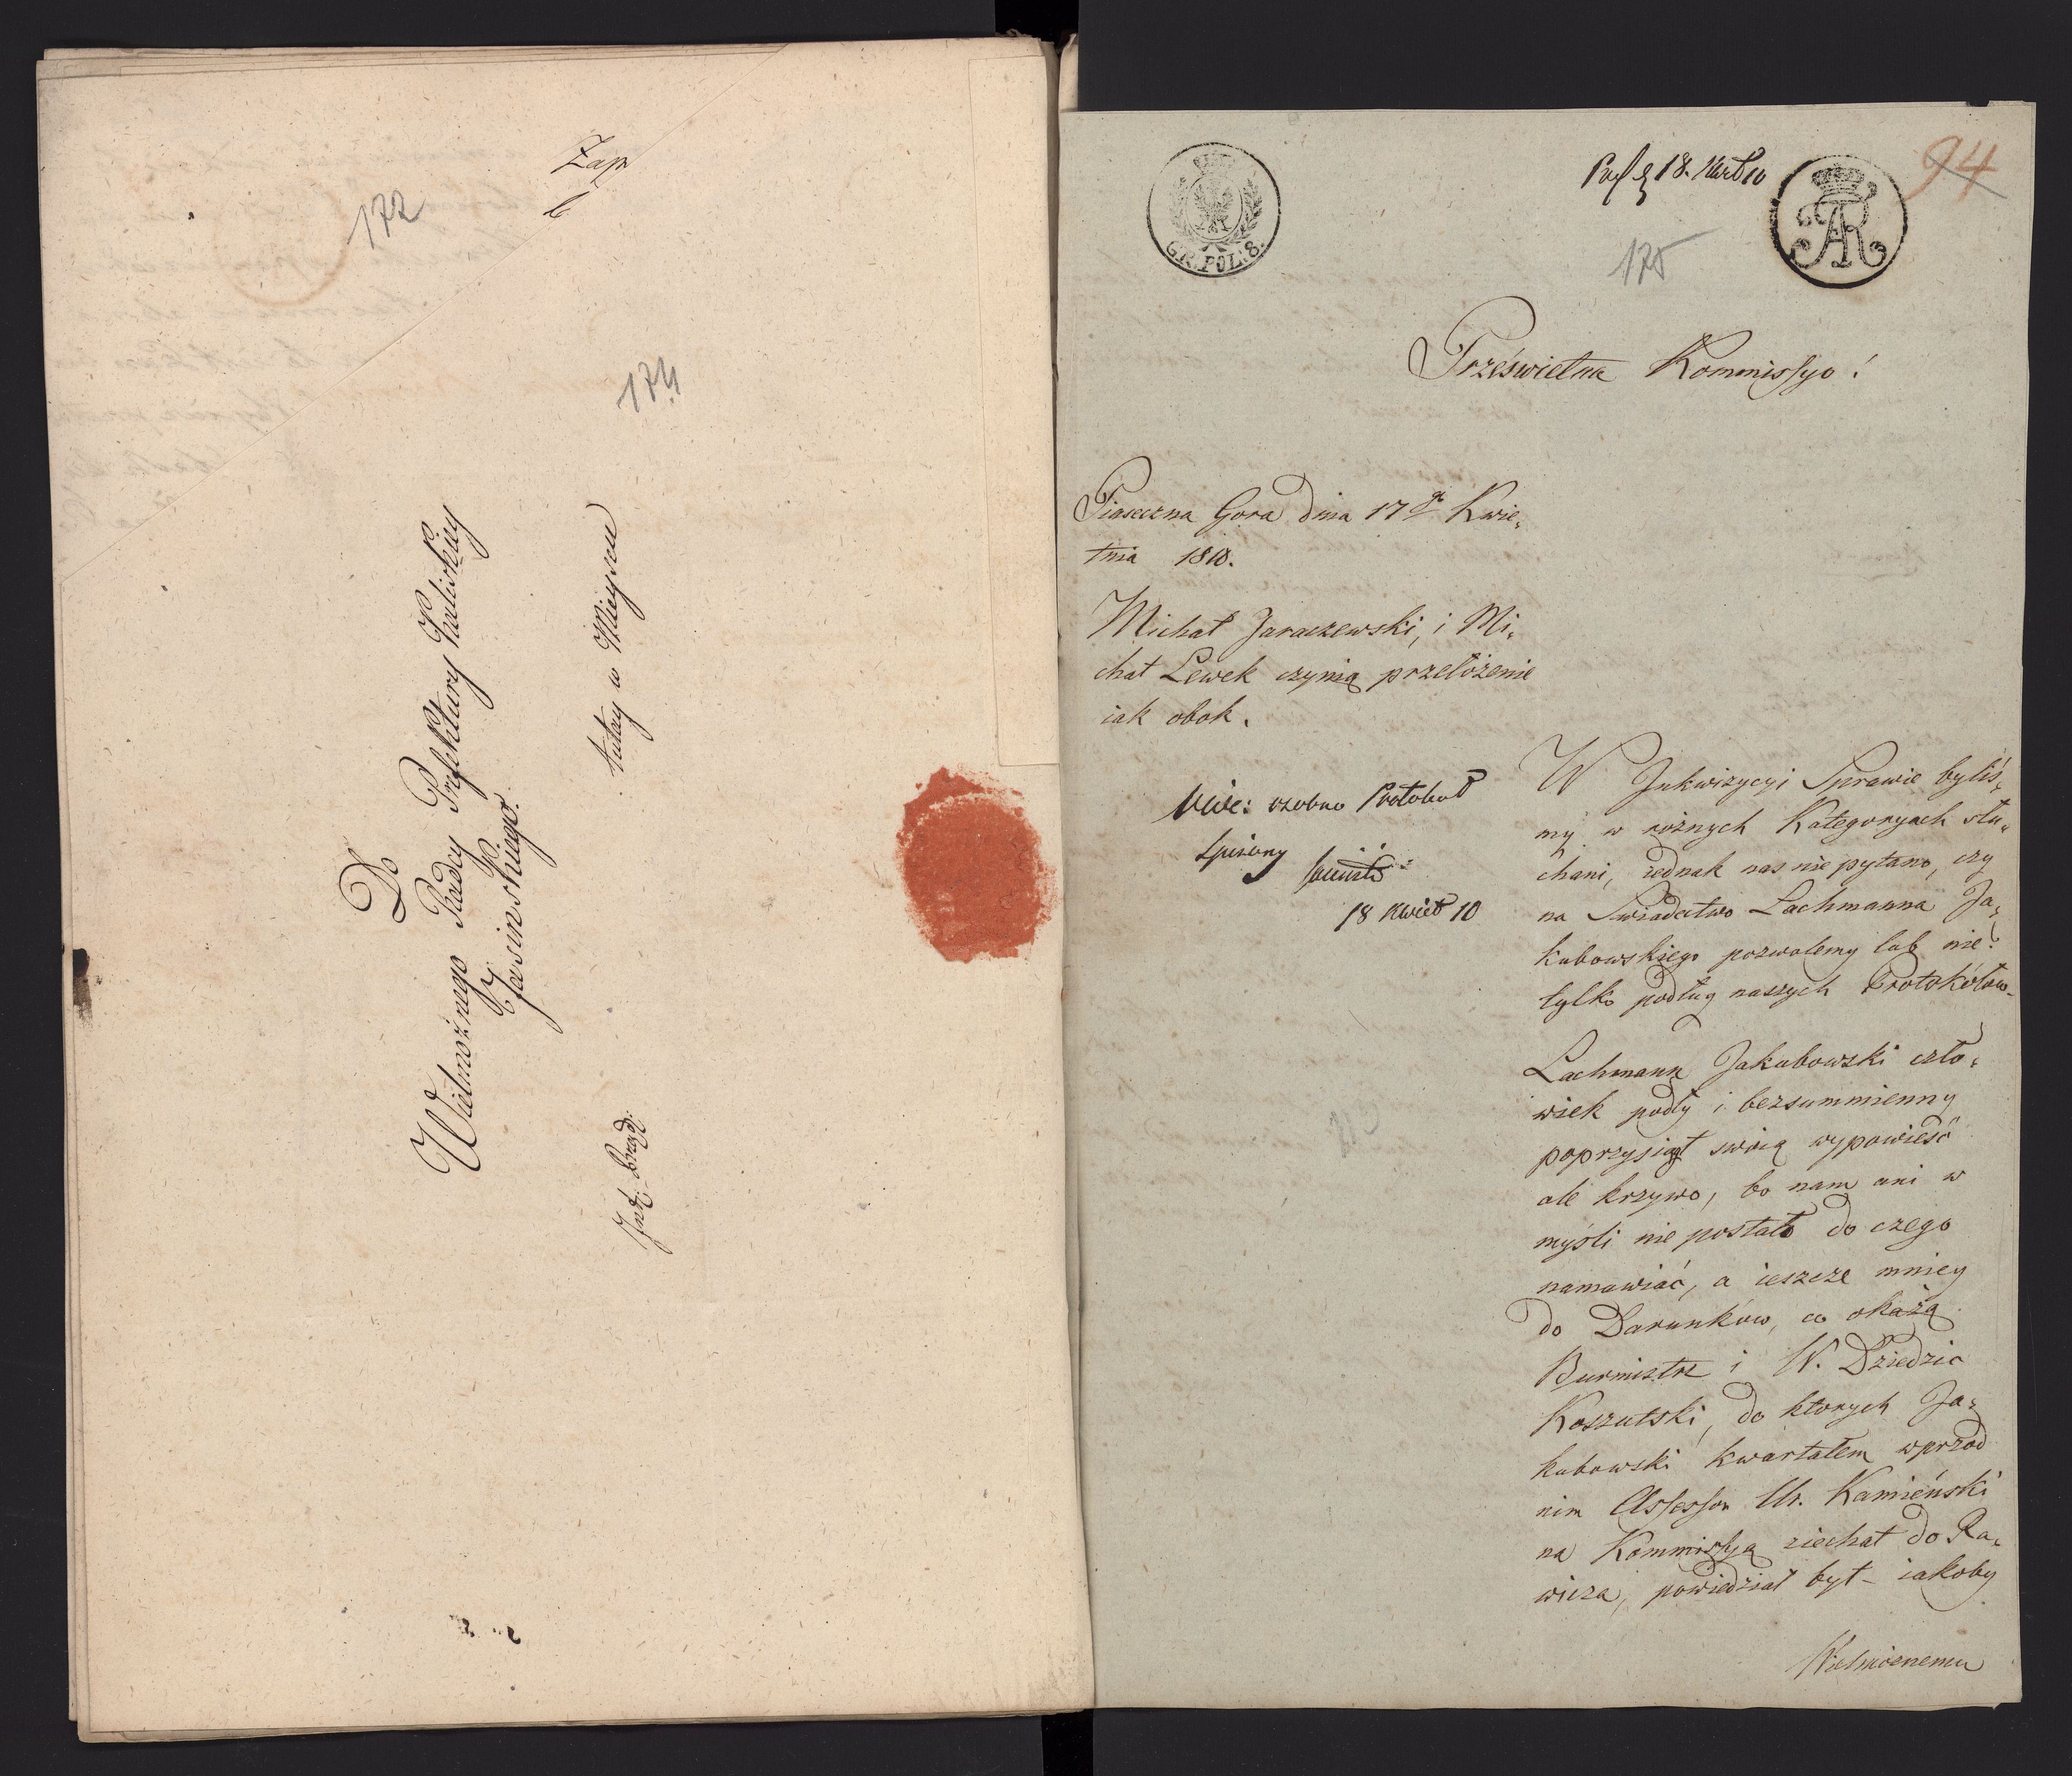 172
174
Do
Wielmożnego Radcy Prefektury Kaliskiey
Jasinskiego.
tutay w Mieyscu
18.
10
94
175
GR. POL: 8.
AR
Prześwietna Kommissyo!
Piaseczna Gora dnia 17go Kwie,
tnia 1810.
Michał Jaraczewski, i Mi,
chał Lewek czynią przełożenie
iak obok.
osobno Protokuł
spisany
18 Kwiet 10
W Jnkwizycyi Sprawie byliś,
my w rożnych Kategoryach słu,
chani, iednak nas nie pytano, czy
na Swiadectwo Lachmanna Ja,
kubowskiego pozwalemy lub nie?
tylko podług naszych Protokółow.
Lachmann Jakubowski czło,
wiek podły i bezsummienny
poprzysiągł swoią wypowieść
ale krzywo, bo nam ani w
myśli nie postało do czego
namawiać, a ieszcze mniey
do Darunkow, co okażą
Burmistrz i W. Dziedzic
Koszutski, do ktorych Ja,
kubowski kwartałem wprzod
nim Assessor Ur. Kamieński
na Kommissyą ziechał do Ra,
wicza, powiedział był - iakoby
Wielmożnemu